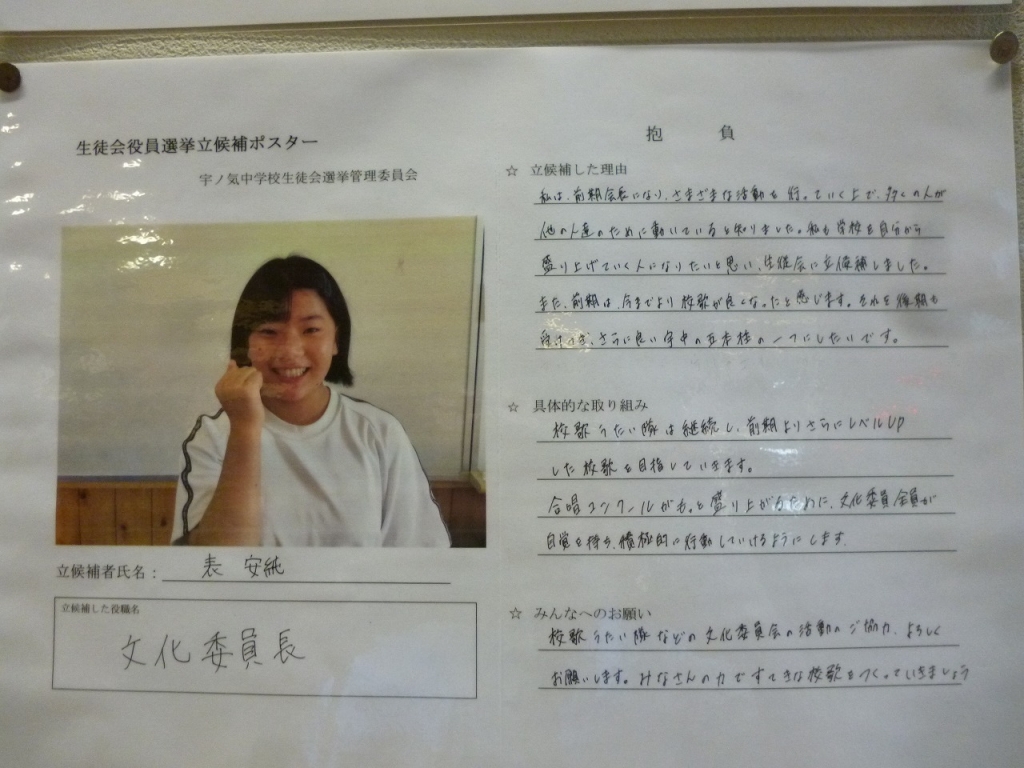 生徒会役員選挙立候補ポスター
宇ノ気中学校生徒会選挙管理委員会
立候補者氏名：表 安純
立候補した役職名
文化委員長
抱 負
☆ 立候補した理由
私は、前期会長になり、さまざまな活動を行っていく上で、多くの人が
他の人達のために動いていると知りました。私も学校を自分から
盛り上げていく人になりたいと思い、生徒会に立候補しました。
また、前期は、今までより校歌が良くなったと感じます。それを後期も
さらに良い宇中の五本柱の一つにしたいです。
☆ 具体的な取り組み
校歌うたい隊は継続し、前期よりさらにレベルUP
した校歌を目指していきます。
合唱コンクールがもっと盛り上がるために、文化委員全員が
自覚を持ち、積極的に行動していけるようにします。
☆ みんなへのお願い
校歌うたい隊などの文化委員会の活動のご協力、よろしく
お願いします。みなさんの力ですてきな校歌をつくっていきましょう